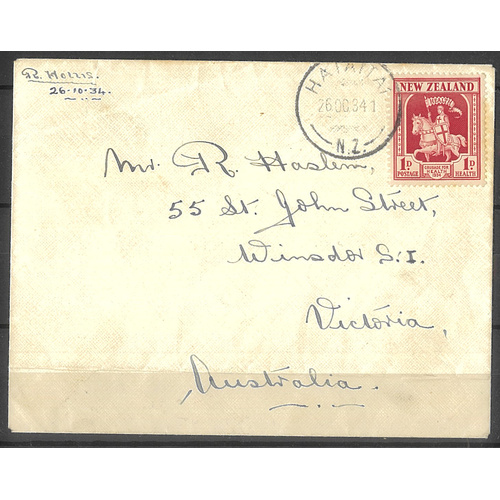 R. Hollis.
26-10-34.
HATAITAI
26 OC 34 1
N.Z.
NEW ZEALAND
1D 1D
POSTAGE HEALTH
CRUSADE FOR
HEALTH
1934
Mr. R. Haslem,
55 St. John Street,
Winsdor S.1
Victoria,
Australia.